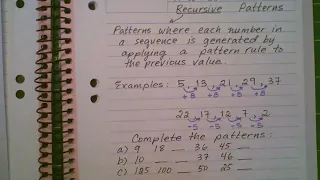 Recursive Patterns
Patterns where each number in
a sequence is generated by
applying a pattern rule to
the previous value.
Examples: 5, 13, 21, 29, 37
+8 +8 +8 +8
22, 17, 12, 7, 2
-5 -5 -5 -5
Complete the patterns:
a) 9 18 __ 36 45 __
b) 10 __ __ 37 46 __
c) 125 100 __ 50 25 __